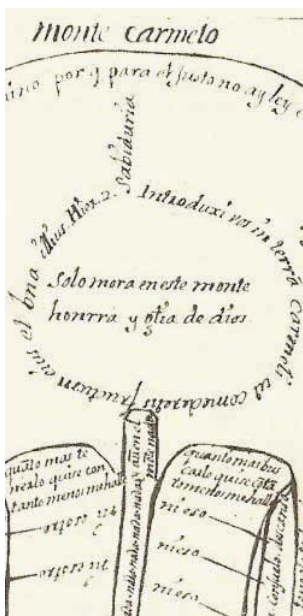 monte carmelo
ino por q para el justo no ay ley
Sabiduria
Introduxi vos in terrã carmeli ut comederetis fructum eius et bna illius. Hier. 2.
Solo mora en este monte
honrra y glia de dios
y aun en el
monte nada
nada-nada-nada-nada
quãto mas te
nerlo quise con
tanto menos me halle
quanto mas bus
carlo quise cõ tã
to menos me halle
ni esotro
ni esotro
ni eso
ni eso
ni eso